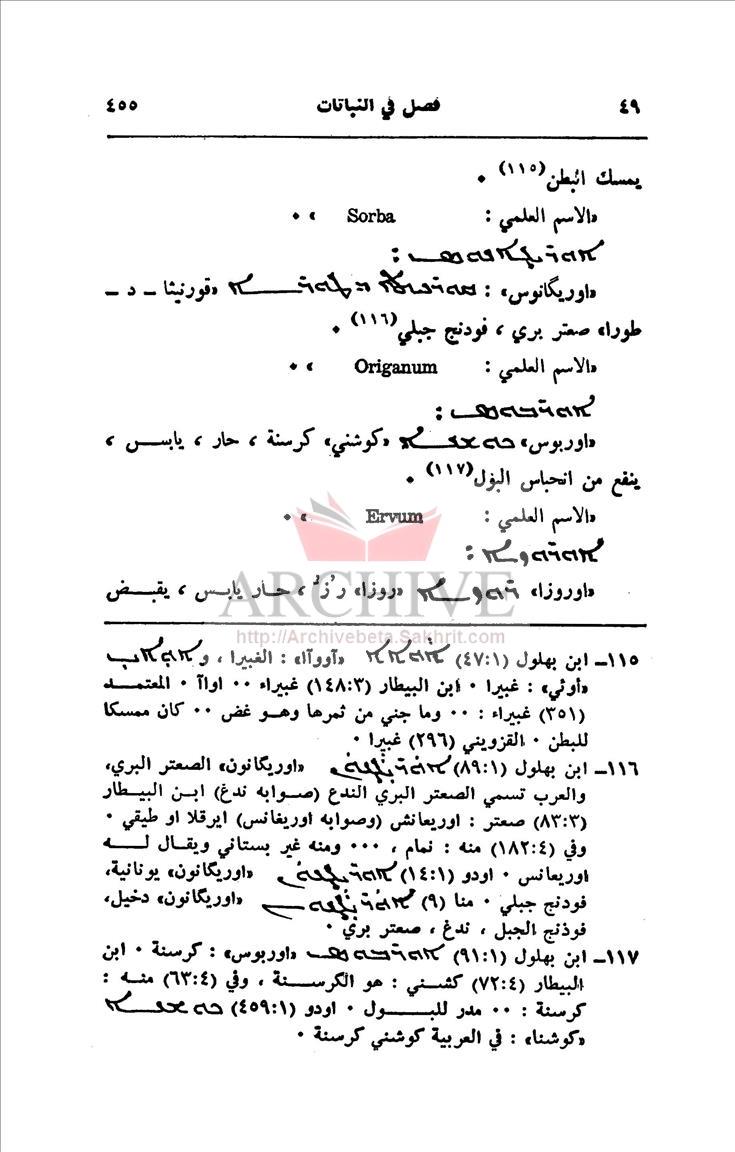 ٤٩ فصل في النباتات ٤٥٥
يمسك البطن(١١٥) ٠
«الاسم العلمي : Sorba » ٠
ܐܘܪܝܓܐܢܘܣ :
«اوريگانوس» : «قورنيثا ـ د ـ
طورا» صعتر بري ، فودنج جبلي(١١٦) ٠
«الاسم العلمي : Origanum » ٠
ܐܘܪܘܒܘܣ :
«اوربوس» ܟܘܫܢܝ «كوشني» كرسنة ، حار ، يابس ،
ينفع من انحباس البول(١١٧) ٠
«الاسم العلمي : Ervum » ٠
ܐܘܪܘܙܐ :
«اوروزا» ܪܘܙܐ «روزا» رُزّ ، حار يابس ، يقبض
ARCHIVE
http://Archivebeta.Sakhrit.com
١١٥ـ ابن بهلول (٤٧:١) «آووآا» : الغبيرا ، و
«أوثي» : غبيرا ٠ ابن البيطار (١٤٨:٣) غبيراء ٠٠ اواآ ٠ المعتمد
(٣٥١) غبيراء : ٠٠ وما جني من ثمرها وهو غض ٠٠ كان ممسكا
للبطن ٠ القزويني (٢٩٦) غبيرا ٠
١١٦ـ ابن بهلول (٨٩:١) «اوريگانون» الصعتر البري،
والعرب تسمي الصعتر البري الندع (صوابه ندغ) ابن البيطار
(٨٣:٣) صعتر : اوريعانش (وصوابه اوريغانس) ايرقلا او طيقي ٠
وفي (١٨٢:٤) منه : نمام ، ٠٠٠ ومنه غير بستاني ويقال له
اوريعانس ٠ اودو (١٤:١) «اوريگانون» يونانية،
فودنج جبلي ٠ منا (٩) «اوريگانون» دخيل،
فوذنج الجبل ، ندغ ، صعتر بري ٠
١١٧ـ ابن بهلول (٩١:١) «اوربوس» : كرسنة ٠ ابن
البيطار (٧٢:٤) كشني : هو الكرسنة ، وفي (٦٣:٤) منه :
كرسنة : ٠٠ مدر للبول ٠ اودو (٤٥٩:١) ܟܘܫܢܐ
«كوشنا» : في العربية كوشني كرسنة ٠